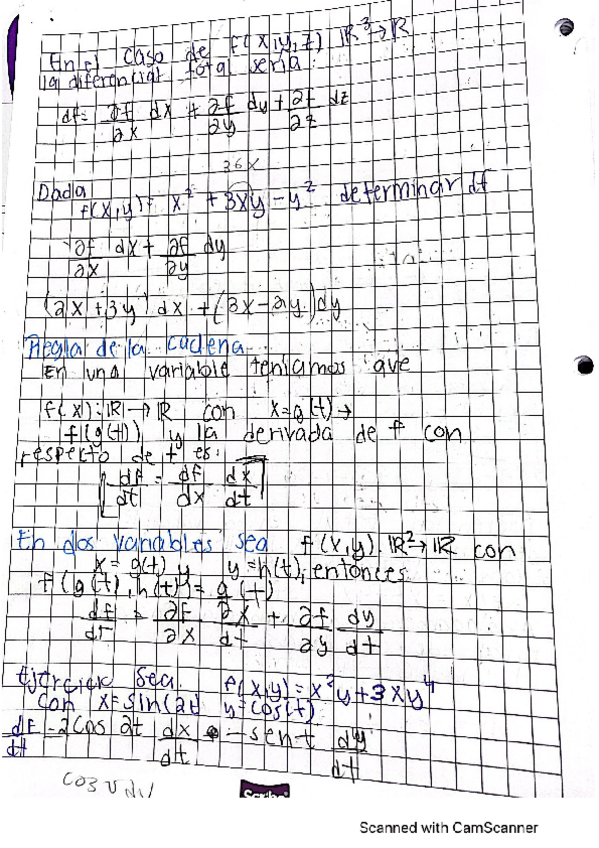 En el caso de f(x,y,z) ℝ³→ℝ
la diferencial total seria:
df= ∂f/∂x dx + ∂f/∂y dy + ∂f/∂z dz
36x
Dada
f(x,y)= x² + 3xy - y² determinar df
∂f/∂x dx + ∂f/∂y dy
(2x+3y) dx + (3x-2y) dy
Regla de la cadena
En una variable teniamos que
f(x): ℝ→ℝ con x=g(t) →
f(g(t)) y la derivada de f con
respecto de t es:
df/dt = df/dx dx/dt
En dos variables sea f(x,y) ℝ²→ℝ con
x = g(t) y y=h(t), entonces
f(g(t), h(t)) = g(t)
df/dt = ∂f/∂x ∂x/dt + ∂f/∂y dy/dt
Ejercicio Sea f(x,y)=x²y+3xy⁴
con x=sin(2t) y=cos(t)
df/dt = 2cos 2t dx/dt - sent dy/dt
cos v dv
Scribe
Scanned with CamScanner